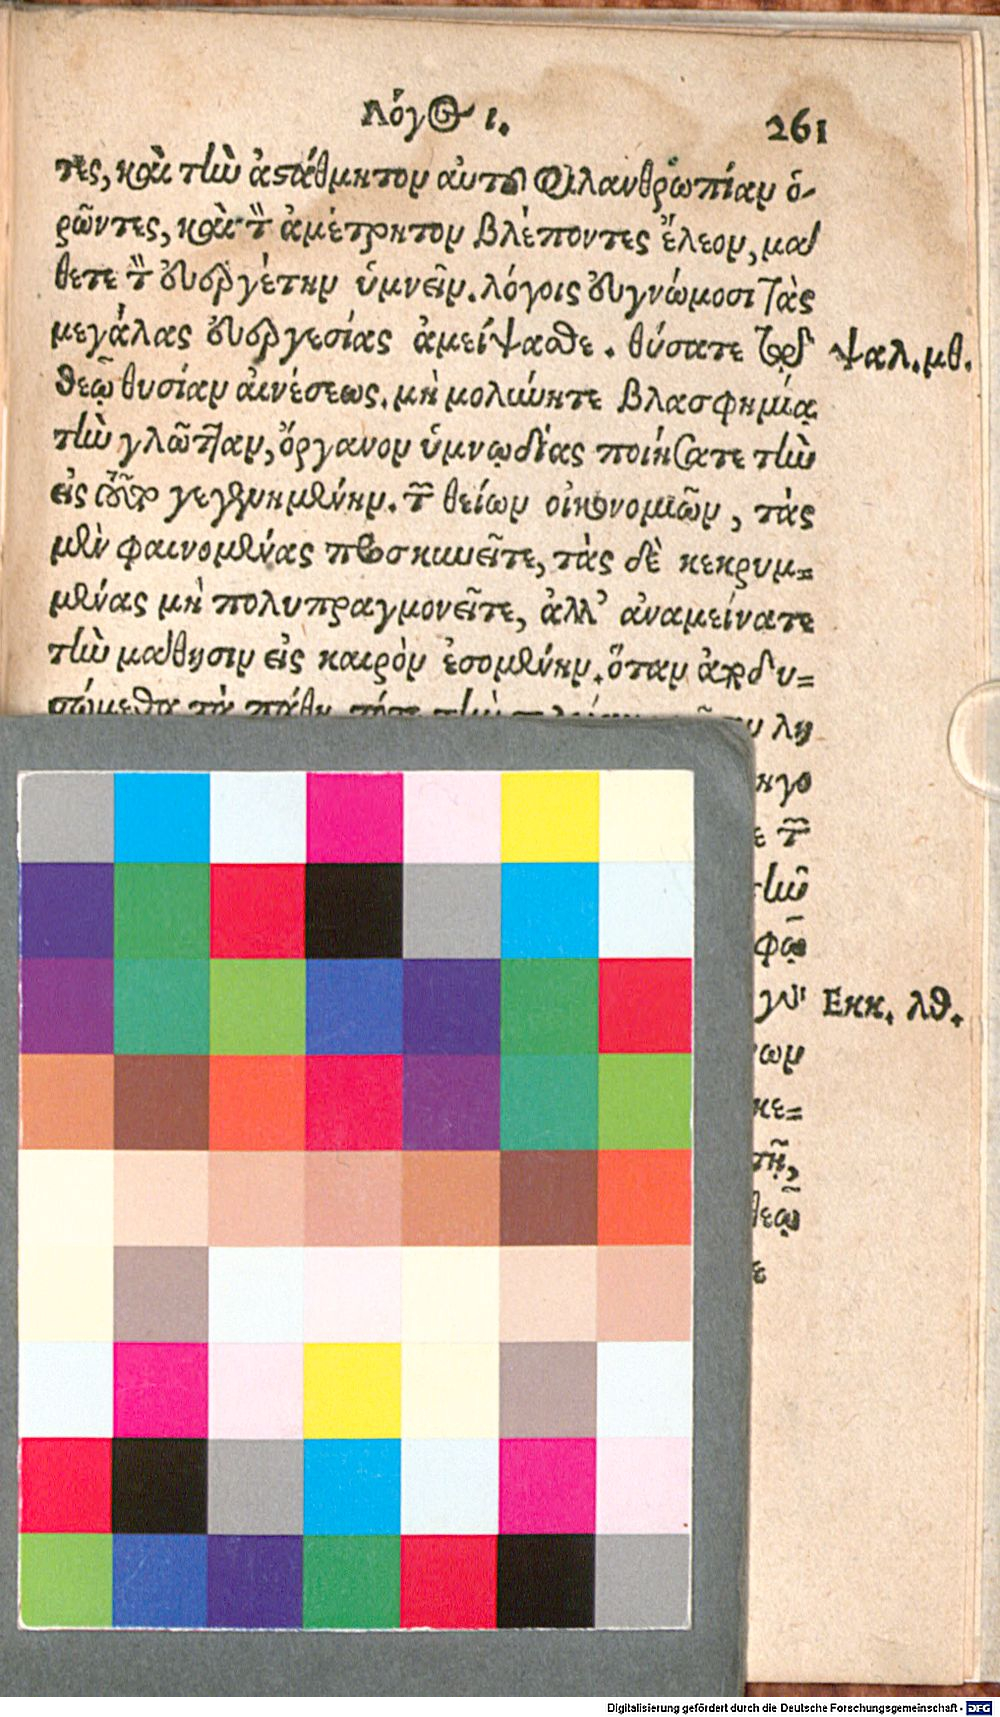 Λόγος ι. 261
τες, καὶ τὴν ἀστάθμητον αὐτοῦ φιλανθρωπίαν ὁ-
ρῶντες, καὶ τὸν ἀμέτρητον βλέποντες ἔλεον, μά
θετε τὸν εὐεργέτην ὑμνεῖν. λόγοις εὐγνώμοσι τὰς
μεγάλας εὐεργεσίας ἀμείψασθε. θύσατε τῷ
ψαλ. μθ.
θεῷ θυσίαν αἰνέσεως. μὴ μολύνητε βλασφημίᾳ
τὴν γλῶτταν, ὄργανον ὑμνῳδίας ποιήσατε τὴν
εἰς τοῦτο γεγενημένην. τῶν θείων οἰκονομιῶν, τὰς
μὲν φαινομένας προσκυνεῖτε, τὰς δὲ κεκρυμ=
μένας μὴ πολυπραγμονεῖτε, ἀλλ' ἀναμείνατε
τὴν μάθησιν εἰς καιρὸν ἐσομένην. ὅταν ἀπεκδυ=
σώμεθα τὰ πάθη, τότε τὴν
λη
ηγο
ε τῶν
τὴν
φῶ
Εκκ. λθ.
ων
κε=
τῇ,
θεῷ
ε
Digitalisierung gefördert durch die Deutsche Forschungsgemeinschaft - DFG